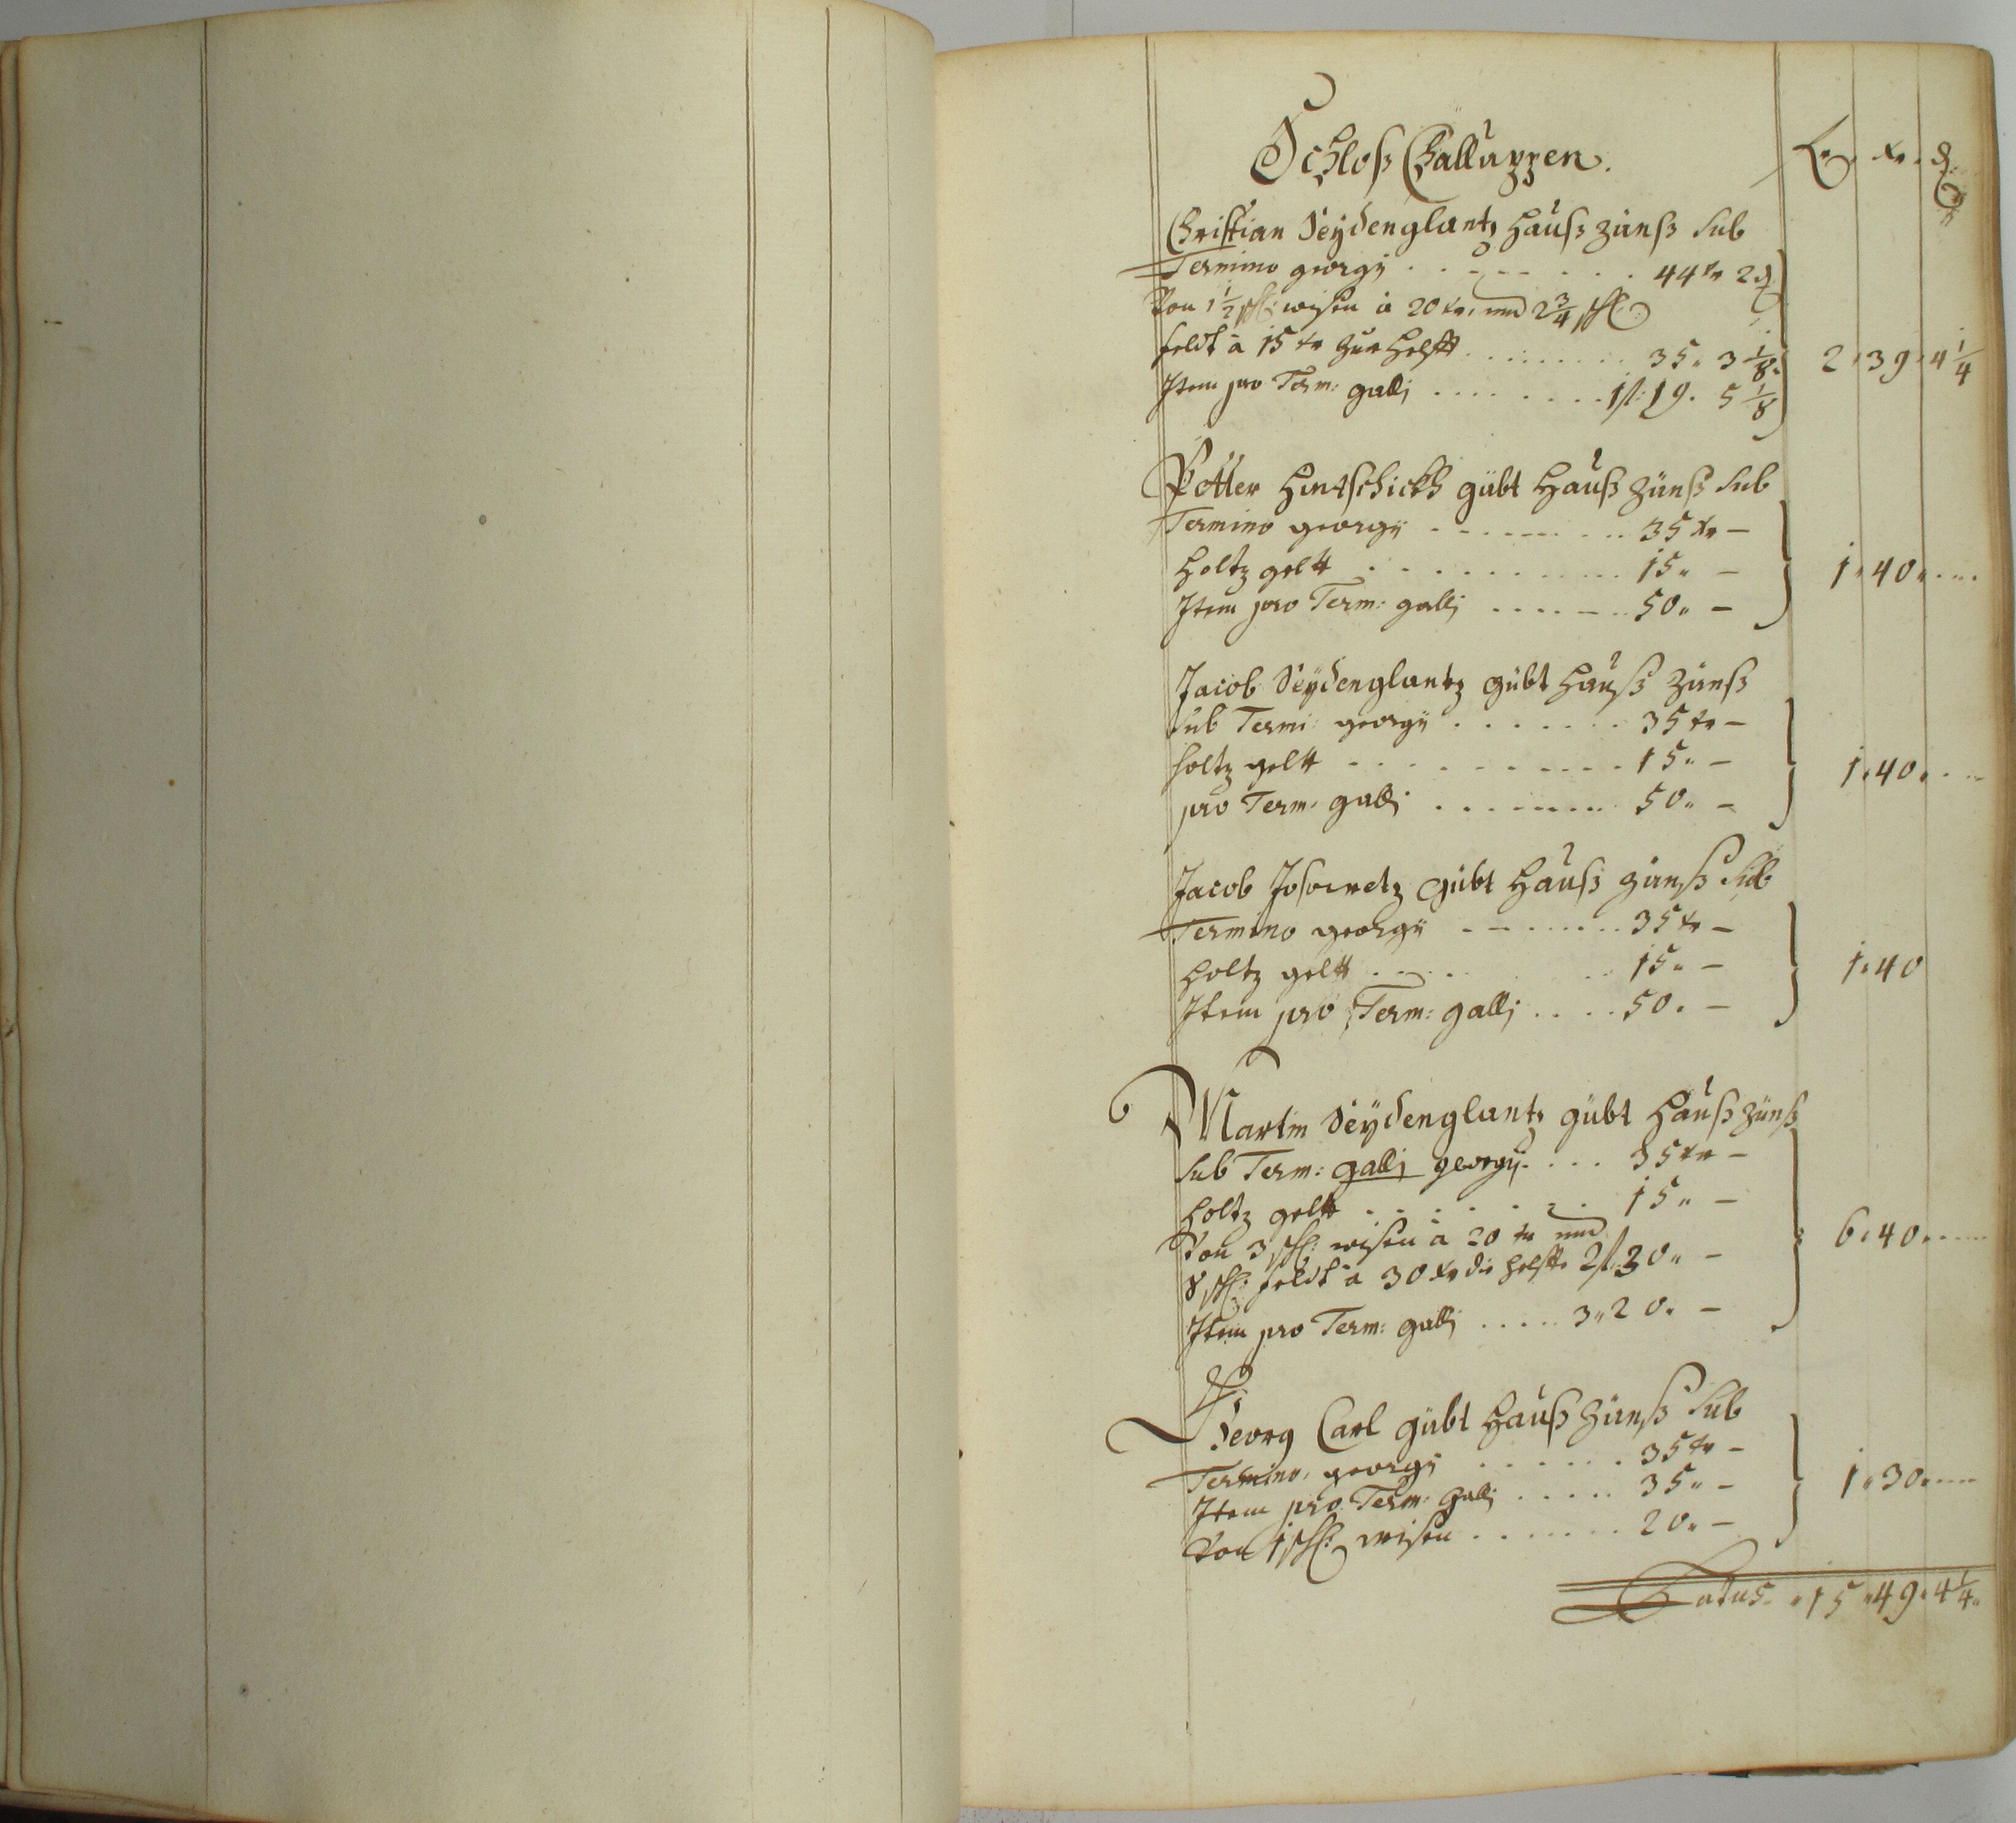 Schloß Challuppen.
fl. xr. ₰.
Christian Seydenglantz Hauß zünß Sub
Termino georgÿ . . . . . . 44 xr 2 ₰
Von 1 1/2 sch: wisen à 20 xr. und 2 3/4 sch:
feldt à 15 xr zur Helfft . . . . . . 35. 3 1/8. 2. 39. 4 1/4
Item pro Term: gallj . . . . . . 1 fl: 19. 5 1/8
Petter Hintschickh gübt Hauß zünß Sub
Termino georgÿ . . . . . . 35 xr –
Holtz geltt . . . . . . 15. – 1. 40. . . .
Item pro Term: gallj . . . . . . 50. –
Jacob Seydenglantz gübt Hauß zünß
Sub Termi: georgÿ . . . . . . 35 xr –
holtz geltt . . . . . . 15. – 1. 40. . . .
pro Term: gallj . . . . . . 50. –
Jacob gübt Hauß zünß Sub
Termino georgÿ . . . . . . 35 xr –
Holtz geltt . . . . . . 15. – 1. 40
Item pro Term: gallj . . . . 50. –
Martin Seÿdenglantz gübt Hauß zünß
Sub Term: gallj georgÿ. . . . 35 xr –
Holtz geltt . . . . . . 15. –
Von 3 sch: wisen à 20 xr und 6. 40. . . .
8 sch: feldt à 30 xr die Helffte 2 fl. 30. –
Item pro Term: gallj . . . . . 3. 20. –
Georg Carl gübt Hauß zünß Sub
Termino georgÿ . . . . . . 35 xr –
Item pro Term: gallj . . . . . 35. – 1. 30. . . .
Von 1 sch: wisen . . . . . . 20. –
Latus. . 15. 49. 4 1/4.